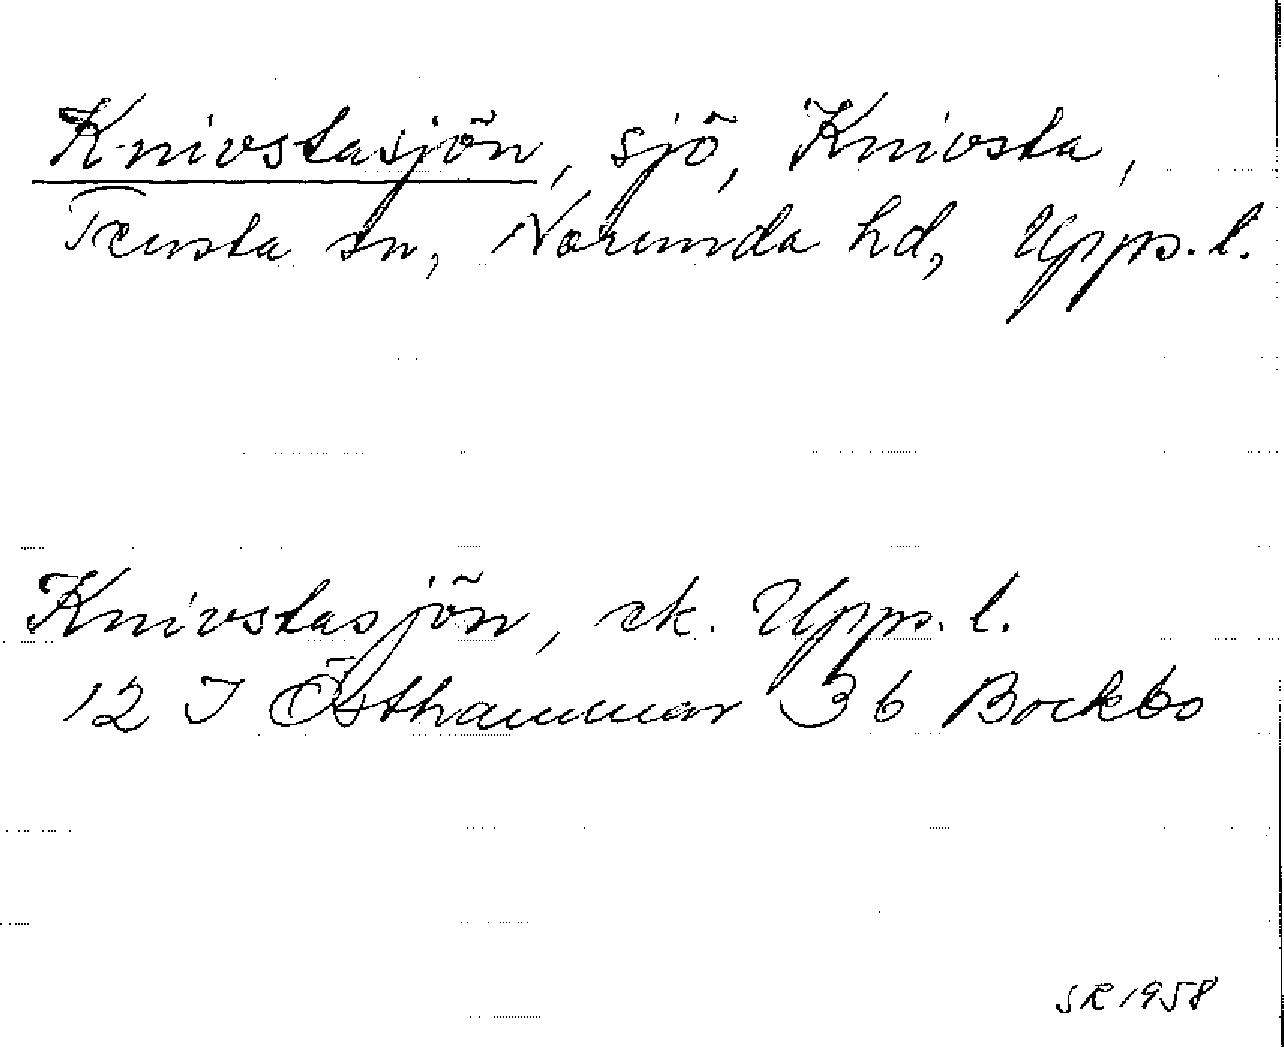 Knivstasjön, sjö, Knivsta,
Tensta sn, Norunda hd, Upps. l.
Knivstasjön, ek. Upps. l.
12 I Östhammar 3 b Bockbo
SR 1958